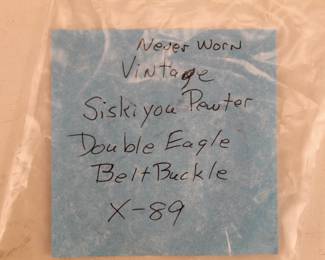 Never Worn
Vintage
Siskiyou Pewter
Double Eagle
Belt Buckle
X-89